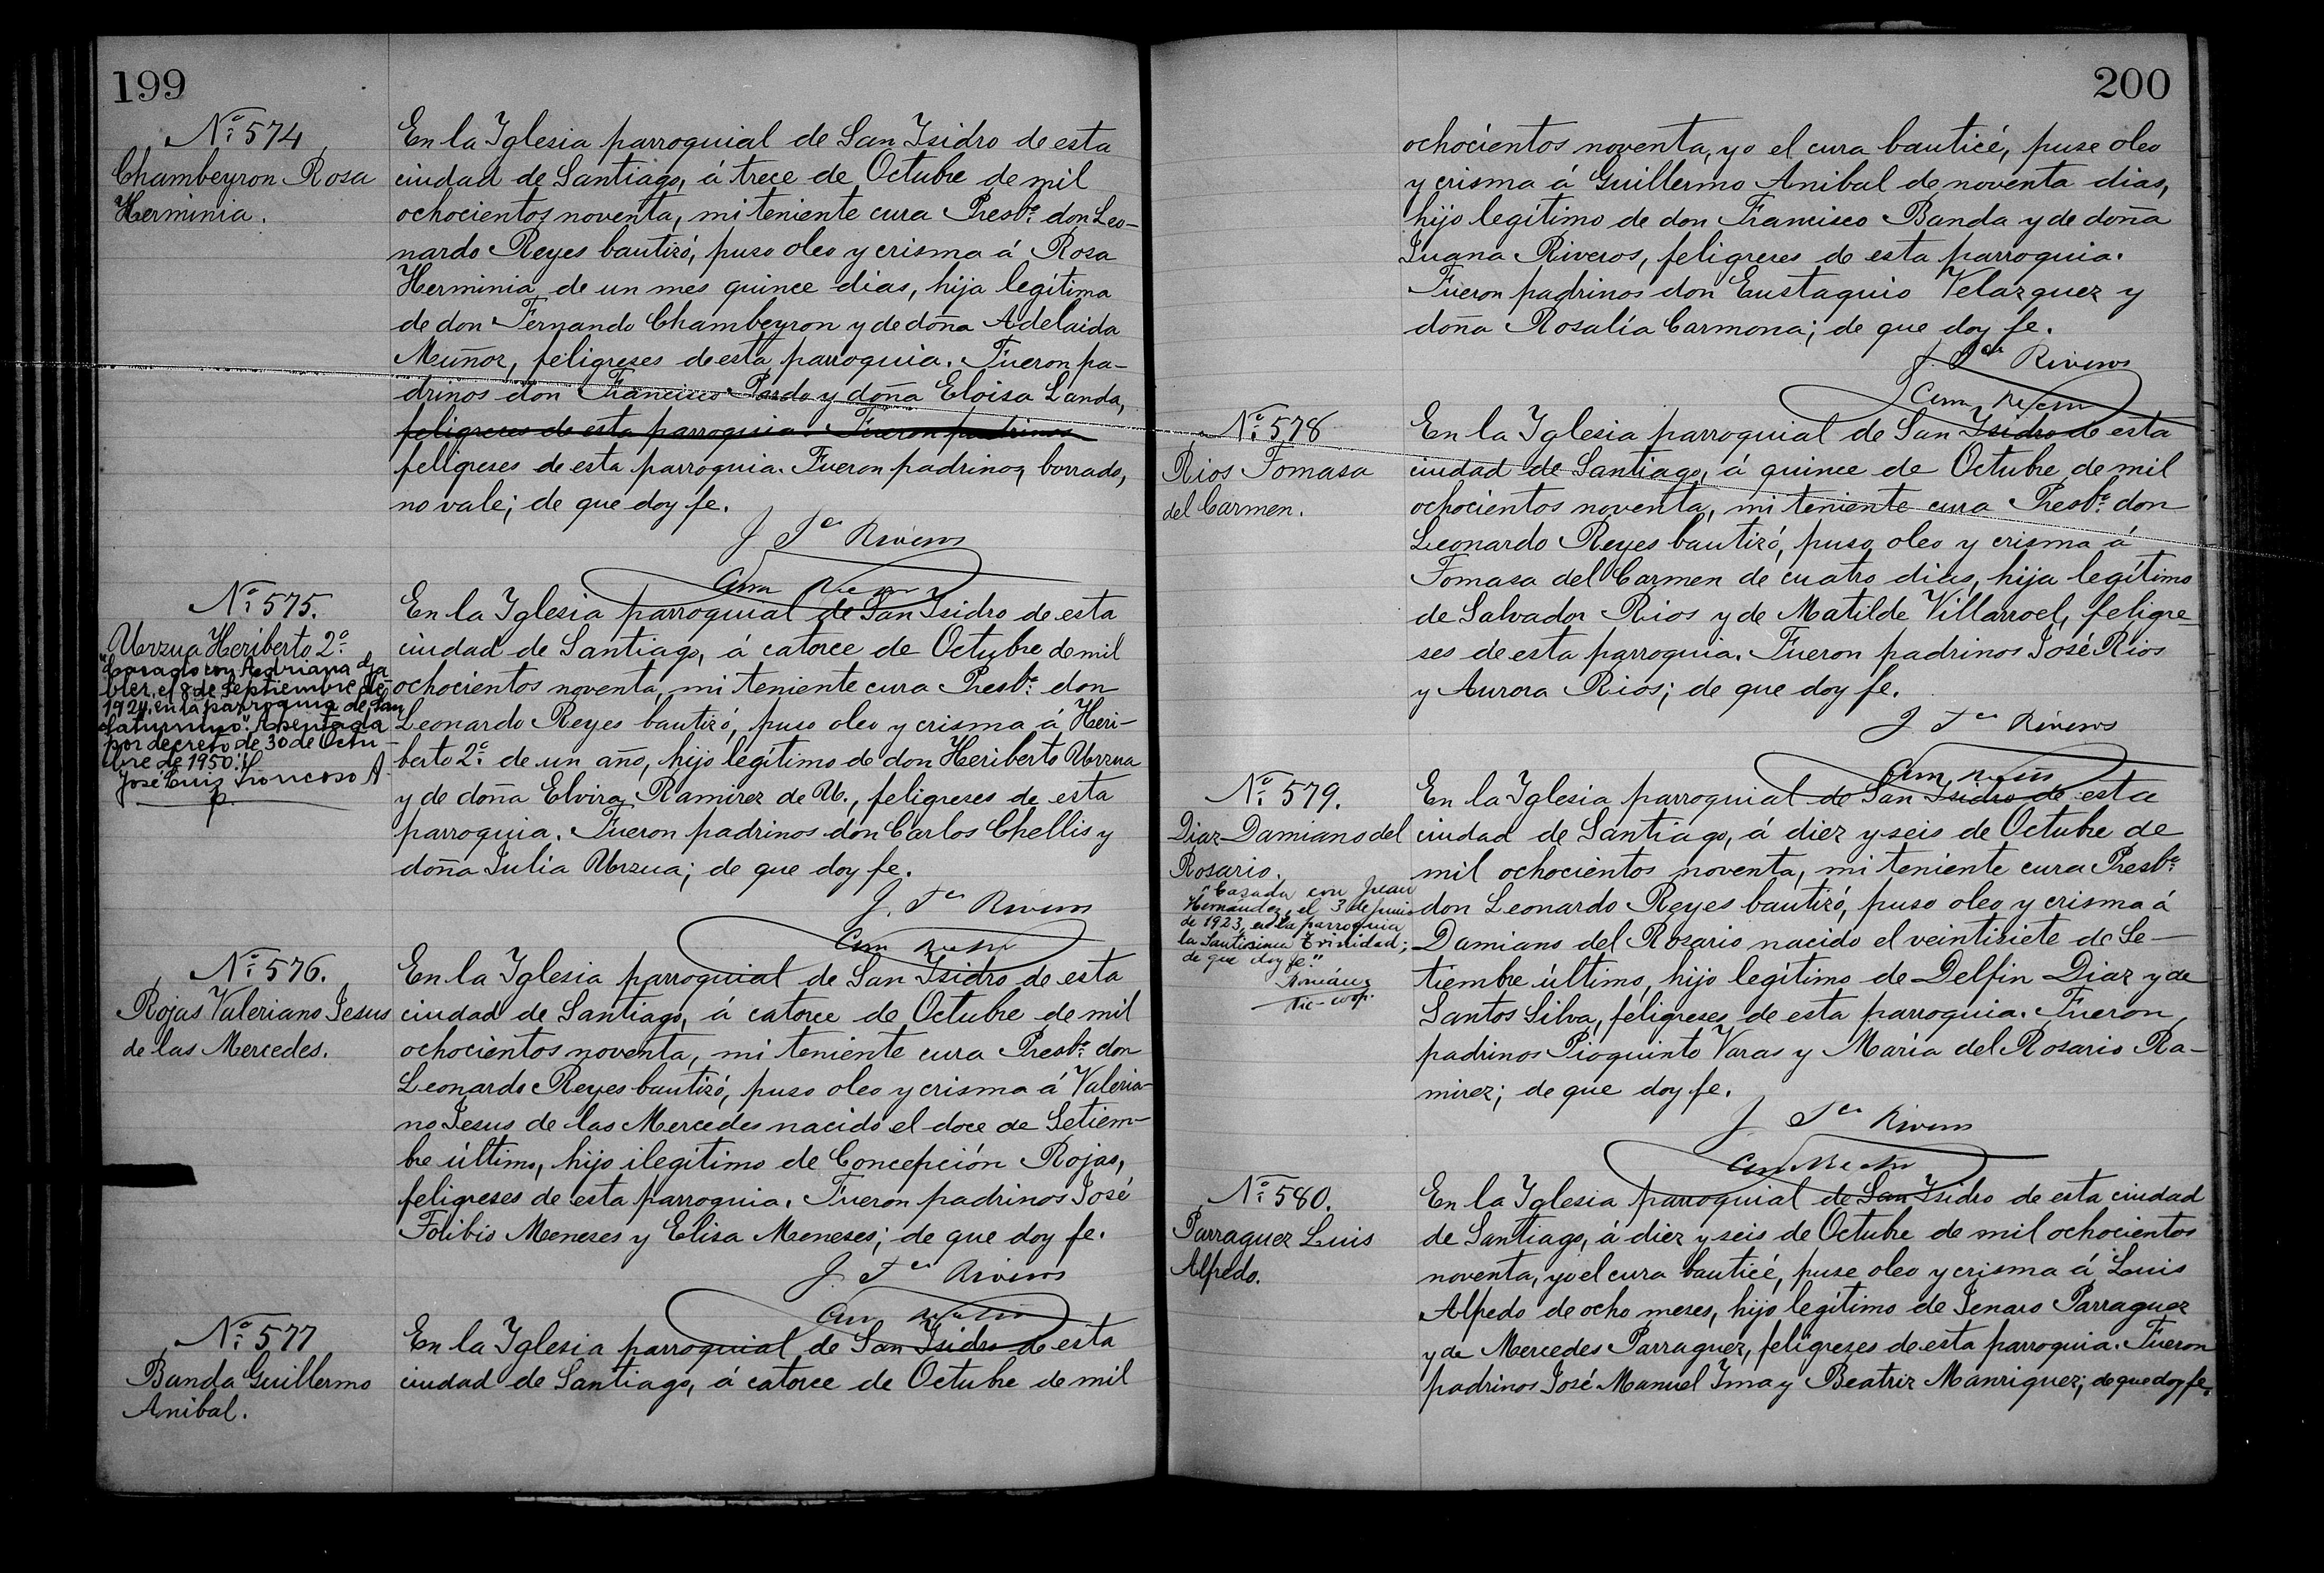 199
Nº 574
Chambeyron Rosa
Herminia.
En la Iglesia parroquial de San Isidro de esta
ciudad de Santiago, á trece de Octubre de mil
ochocientos noventa, mi teniente cura Presbº don Leo-
nardo Reyes bautizó, puso oleo y crisma á Rosa
Herminia de un mes quince dias, hija legítima
de don Fernando Chambeyron y de doña Adelaida
Muñoz, feligreses de esta parroquia. Fueron pa-
drinos don Francisco Pardo y doña Eloisa Landa,
feligreses de esta parroquia. Fueron padrinos
feligreses de esta parroquia. Fueron padrinos, borrado,
no vale; de que doy fe.
J. Riveros
Cura
Nº 575.
Urzua Heriberto 2º
"Casado con Adriana
el 8 de Septiembre de
1924. en la parroquia de San
Saturnino". Asentada
por decreto de 30 de Octu-
bre de 1950.
José Luis Troncoso A
p.
En la Iglesia parroquial de San Isidro de esta
ciudad de Santiago, á catorce de Octubre de mil
ochocientos noventa, mi teniente cura Presbº don
Leonardo Reyes bautizó, puso oleo y crisma á Heri-
berto 2º de un año, hijo legítimo de don Heriberto Urzua
y de doña Elvira Ramirez de U., feligreses de esta
parroquia. Fueron padrinos don Carlos Chellis y
doña Julia Urzua; de que doy fe.
J. Riveros
Cura
Nº 576.
Rojas Valeriano Jesus
de las Mercedes.
En la Iglesia parroquial de San Isidro de esta
ciudad de Santiago, á catorce de Octubre de mil
ochocientos noventa, mi teniente cura Presbº don
Leonardo Reyes bautizó, puso oleo y crisma á Valeria-
no Jesus de las Mercedes nacido el doce de Setiem-
bre último, hijo ilegítimo de Concepción Rojas,
feligreses de esta parroquia. Fueron padrinos José
Tolibio Meneses y Elisa Meneses; de que doy fe.
J. Riveros
Cura
Nº 577
Banda Guillermo
Anibal.
En la Iglesia parroquial de San Isidro de esta
ciudad de Santiago, á catorce de Octubre de mil
200
ochocientos noventa, yo el cura bauticé, puse oleo
y crisma á Guillermo Anibal de noventa dias,
hijo legítimo de don Francisco Banda y de doña
Juana Riveros, feligreses de esta parroquia.
Fueron padrinos don Eustaquio Velazquez y
doña Rosalía Carmona; de que doy fe.
J. Riveros
Cura
Nº 578
Rios Tomasa
del Carmen.
En la Iglesia parroquial de San Isidro de esta
ciudad de Santiago, á quince de Octubre de mil
ochocientos noventa, mi teniente cura Presbº don
Leonardo Reyes bautizó, puso oleo y crisma á
Tomasa del Carmen de cuatro dias, hija legítimo
de Salvador Rios y de Matilde Villarroel, feligre-
ses de esta parroquia. Fueron padrinos José Rios
y Aurora Rios; de que doy fe.
J. Riveros
Cura
Nº 579.
Diaz Damiano del
Rosario.
"Casada con Juan
Hernandez, el 3 de junio
de 1923, en la parroquia
la Santisima Trinidad;
de que doy fe."
Vic-coop.
En la Iglesia parroquial de San Isidro de esta
ciudad de Santiago, á diez y seis de Octubre de
mil ochocientos noventa, mi teniente cura Presbº
don Leonardo Reyes bautizó, puso oleo y crisma á
Damiano del Rosario nacido el veintisiete de Se-
tiembre último, hijo legítimo de Delfin Diaz y de
Santos Silva, feligreses de esta parroquia. Fueron
padrinos Pioquinto Varas y María del Rosario Ra-
mirez; de que doy fe.
J. Riveros
Cura
Nº 580.
Parraguez Luis
Alfredo.
En la Iglesia parroquial de San Isidro de esta ciudad
de Santiago, á diez y seis de Octubre de mil ochocientos
noventa, yo el cura bauticé, puse oleo y crisma á Luis
Alfredo de ocho meses, hijo legítimo de Jenaro Parraguez
y de Mercedes Parraguez, feligreses de esta parroquia. Fueron
padrinos José Manuel Ima y Beatriz Manriquez; de que doy fe.